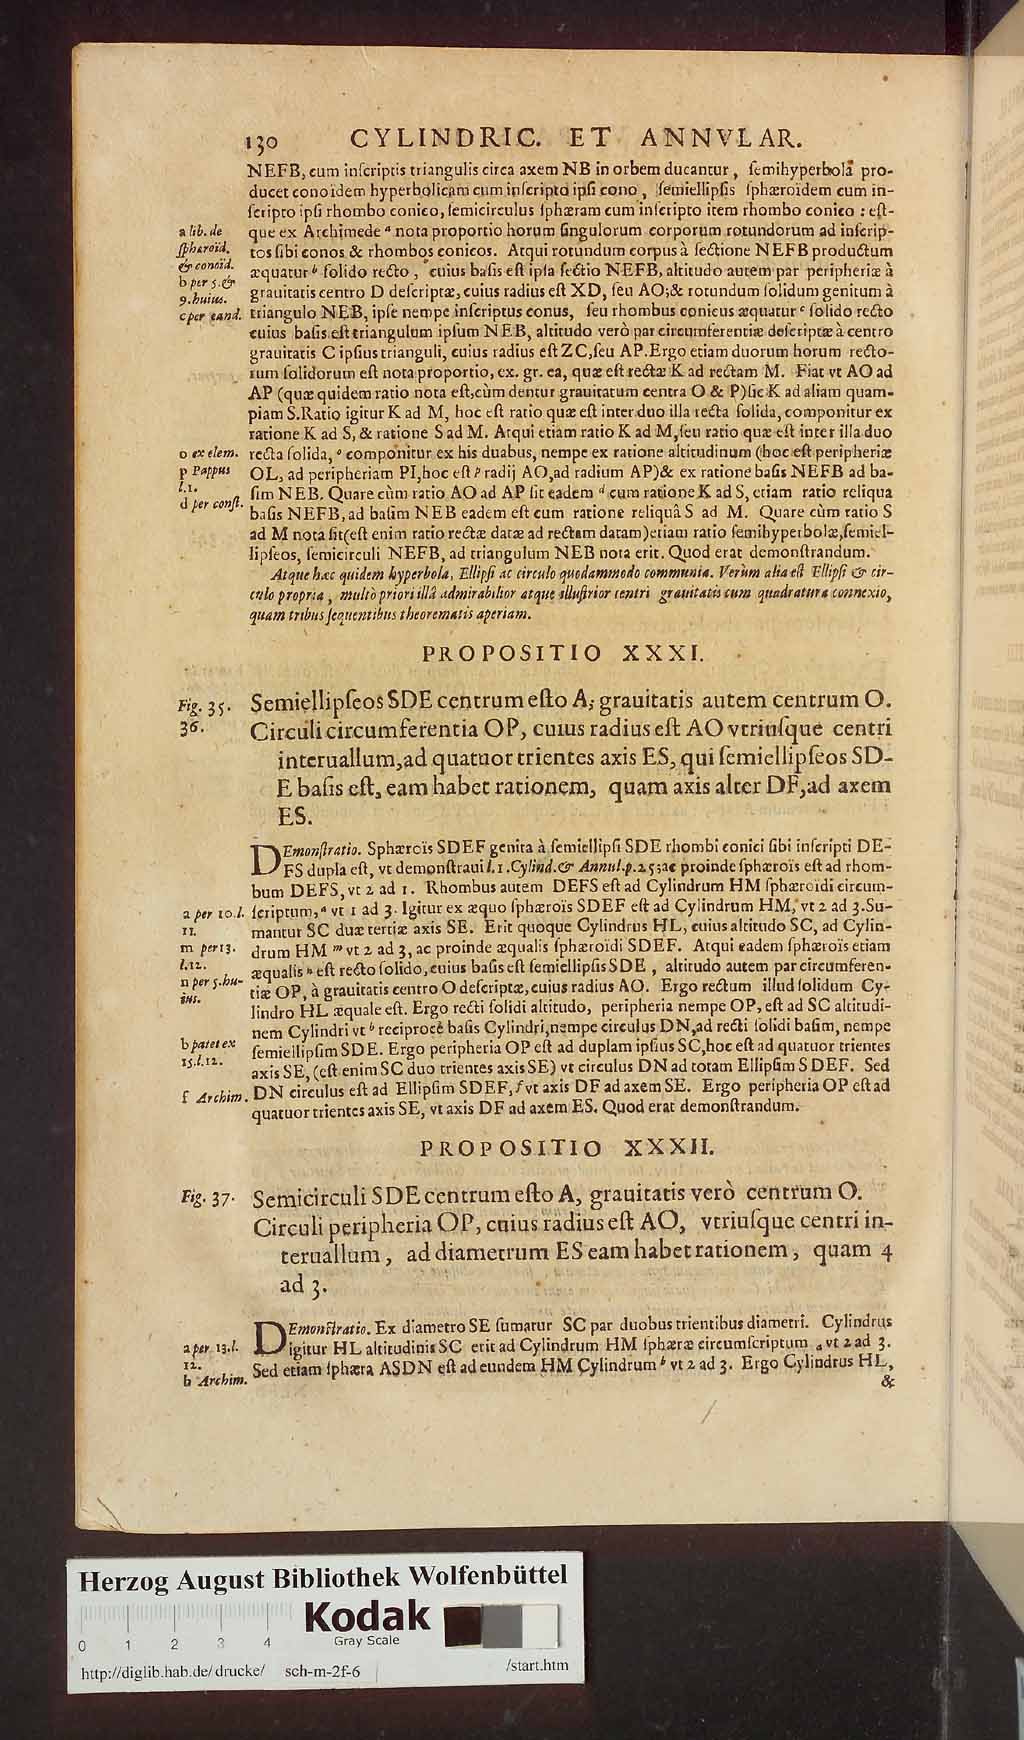 130 CYLINDRIC. ET ANNVLAR.
NEFB, cum inſcriptis triangulis circa axem NB in orbem ducantur, ſemihyperbola pro-
ducet conoïdem hyperbolicam cum inſcripto ipſi cono, ſemiellipſis ſphæroïdem cum in-
ſcripto ipſi rhombo conico, ſemicirculus ſphæram cum inſcripto item rhombo conico : eſt-
que ex Archimede ᵃ nota proportio horum ſingulorum corporum rotundorum ad inſcrip-
tos ſibi conos & rhombos conicos. Atqui rotundum corpus à ſectione NEFB productum
æquatur ᵇ ſolido recto, cuius baſis eſt ipſa ſectio NEFB, altitudo autem par peripheriæ à
grauitatis centro D deſcriptæ, cuius radius eſt XD, ſeu AO;& rotundum ſolidum genitum à
triangulo NEB, ipſe nempe inſcriptus conus, ſeu rhombus conicus æquatur ᶜ ſolido recto
cuius baſis eſt triangulum ipſum NEB, altitudo verò par circumferentiæ deſcriptæ à centro
grauitatis C ipſius trianguli, cuius radius eſt ZC, ſeu AP. Ergo etiam duorum horum recto-
rum ſolidorum eſt nota proportio, ex. gr. ea, quæ eſt rectæ K ad rectam M. Fiat vt AO ad
AP (quæ quidem ratio nota eſt, cùm dentur grauitatum centra O & P) ſic K ad aliam quam-
piam S. Ratio igitur K ad M, hoc eſt ratio quæ eſt inter duo illa recta ſolida, componitur ex
ratione K ad S, & ratione S ad M. Atqui etiam ratio K ad M, ſeu ratio quæ eſt inter illa duo
recta ſolida, ᵒ componitur ex his duabus, nempe ex ratione altitudinum (hoc eſt peripheriæ
OL, ad peripheriam PI, hoc eſt ᵖ radij AO, ad radium AP) & ex ratione baſis NEFB ad ba-
ſim NEB. Quare cùm ratio AO ad AP ſit eadem ᵈ cum ratione K ad S, etiam ratio reliqua
baſis NEFB, ad baſim NEB eadem eſt cum ratione reliquâ S ad M. Quare cùm ratio S
ad M nota ſit (eſt enim ratio rectæ datæ ad rectam datam) etiam ratio ſemihyperbolæ, ſemiel-
lipſeos, ſemicirculi NEFB, ad triangulum NEB nota erit. Quod erat demonſtrandum.
a lib. de
ſphæroid.
& conoid.
b per 5. &
9. huius.
c per eand.
o ex elem.
p Pappus
l.1.
d per conſt.
Atque hæc quidem hyperbola, Ellipſi ac circulo quodammodo communia. Verùm alia eſt Ellipſi & cir-
culo propria, multò priori illâ admirabilior atque illuſtrior centri grauitatis cum quadratura connexio,
quam tribus ſequentibus theorematis aperiam.
PROPOSITIO XXXI.
Fig. 35.
36.
Semiellipſeos SDE centrum eſto A; grauitatis autem centrum O.
Circuli circumferentia OP, cuius radius eſt AO vtriuſque centri
interuallum, ad quatuor trientes axis ES, qui ſemiellipſeos SD-
E baſis eſt, eam habet rationem, quam axis alter DF, ad axem
ES.
DEmonſtratio. Sphærois SDEF genita à ſemiellipſi SDE rhombi conici ſibi inſcripti DE-
FS dupla eſt, vt demonſtraui l. 1. Cylind. & Annul. p. 25; ac proinde ſphæroïs eſt ad rhom-
bum DEFS, vt 2 ad 1. Rhombus autem DEFS eſt ad Cylindrum HM ſphæroïdi circum-
ſcriptum, ᵃ vt 1 ad 3. Igitur ex æquo ſphæroïs SDEF eſt ad Cylindrum HM, vt 2 ad 3. Su-
mantur SC duæ tertiæ axis SE. Erit quoque Cylindrus HL, cuius altitudo SC, ad Cylin-
drum HM ᵐ vt 2 ad 3, ac proinde æqualis ſphæroïdi SDEF. Atqui eadem ſphæroïs etiam
æqualis ⁿ eſt recto ſolido, cuius baſis eſt ſemiellipſis SDE, altitudo autem par circumferen-
tiæ OP, à grauitatis centro O deſcriptæ, cuius radius AO. Ergo rectum illud ſolidum Cy-
lindro HL æquale eſt. Ergo recti ſolidi altitudo, peripheria nempe OP, eſt ad SC altitudi-
nem Cylindri vt ᵇ reciprocè baſis Cylindri, nempe circulus DN, ad recti ſolidi baſim, nempe
ſemiellipſim SDE. Ergo peripheria OP eſt ad duplam ipſius SC, hoc eſt ad quatuor trientes
axis SE, (eſt enim SC duo trientes axis SE) vt circulus DN ad totam Ellipſim SDEF. Sed
DN circulus eſt ad Ellipſim SDEF, f vt axis DF ad axem SE. Ergo peripheria OP eſt ad
quatuor trientes axis SE, vt axis DF ad axem ES. Quod erat demonſtrandum.
a per 10. l.
11.
m per 13.
l.12.
n per 5. hu-
ius.
b patet ex
15. l. 12.
f Archim.
PROPOSITIO XXXII.
Fig. 37.
Semicirculi SDE centrum eſto A, grauitatis verò centrum O.
Circuli peripheria OP, cuius radius eſt AO, vtriuſque centri in-
teruallum, ad diametrum ES eam habet rationem, quam 4
ad 3.
DEmonſtratio. Ex diametro SE ſumatur SC par duobus trientibus diametri. Cylindrus
igitur HL altitudinis SC erit ad Cylindrum HM ſphæræ circumſcriptum ₐ vt 2 ad 3.
Sed etiam ſphæra ASDN eſt ad eundem HM Cylindrum ᵇ vt 2 ad 3. Ergo Cylindrus HL,
&
a per 13. l.
12.
b Archim.
Herzog August Bibliothek Wolfenbüttel
Kodak
Gray Scale
0 1 2 3 4
http://diglib.hab.de/drucke/ sch-m-2f-6 /start.htm